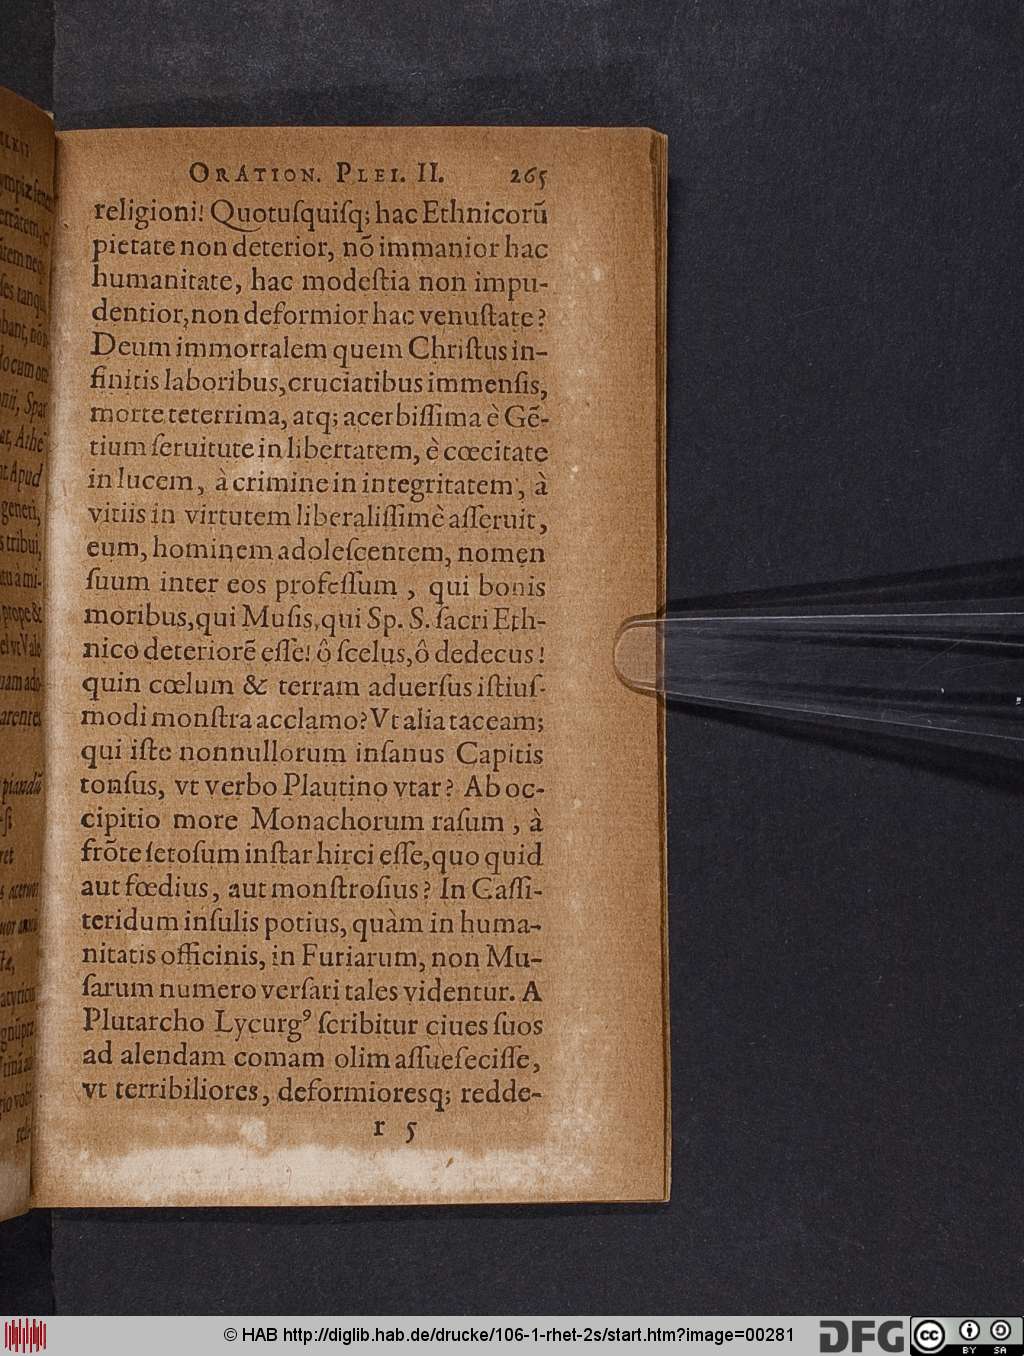 ORATION. PLEI. II. 265
religioni! Quotuſquiſq; hac Ethnicorũ
pietate non deterior, nõ immanior hac
humanitate, hac modeſtia non impu-
dentior, non deformior hac venuſtate?
Deum immortalem quem Chriſtus in-
finitis laboribus, cruciatibus immenſis,
morte teterrima, atq; acerbiſſima è Gẽ-
tium ſeruitute in libertatem, è cœcitate
in lucem, à crimine in integritatem, à
vitiis in virtutem liberaliſſimè aſſeruit,
eum, hominem adoleſcentem, nomen
ſuum inter eos profeſſum, qui bonis
moribus, qui Muſis, qui Sp. S. ſacri Eth-
nico deteriorẽ eſſe! ô ſcelus, ô dedecus!
quin cœlum & terram aduerſus iſtiuſ-
modi monſtra acclamo? Vt alia taceam;
qui iſte nonnullorum inſanus Capitis
tonſus, vt verbo Plautino vtar? Ab oc-
cipitio more Monachorum raſum, à
frõte ſetoſum inſtar hirci eſſe, quo quid
aut fœdius, aut monſtroſius? In Caſſi-
teridum inſulis potius, quàm in huma-
nitatis officinis, in Furiarum, non Mu-
ſarum numero verſari tales videntur. A
Plutarcho Lycurgꝰ ſcribitur ciues ſuos
ad alendam comam olim aſſuefeciſſe,
vt terribiliores, deformioresq; redde-
r 5
© HAB http://diglib.hab.de/drucke/106-1-rhet-2s/start.htm?image=00281
DFG
cc
BY SA